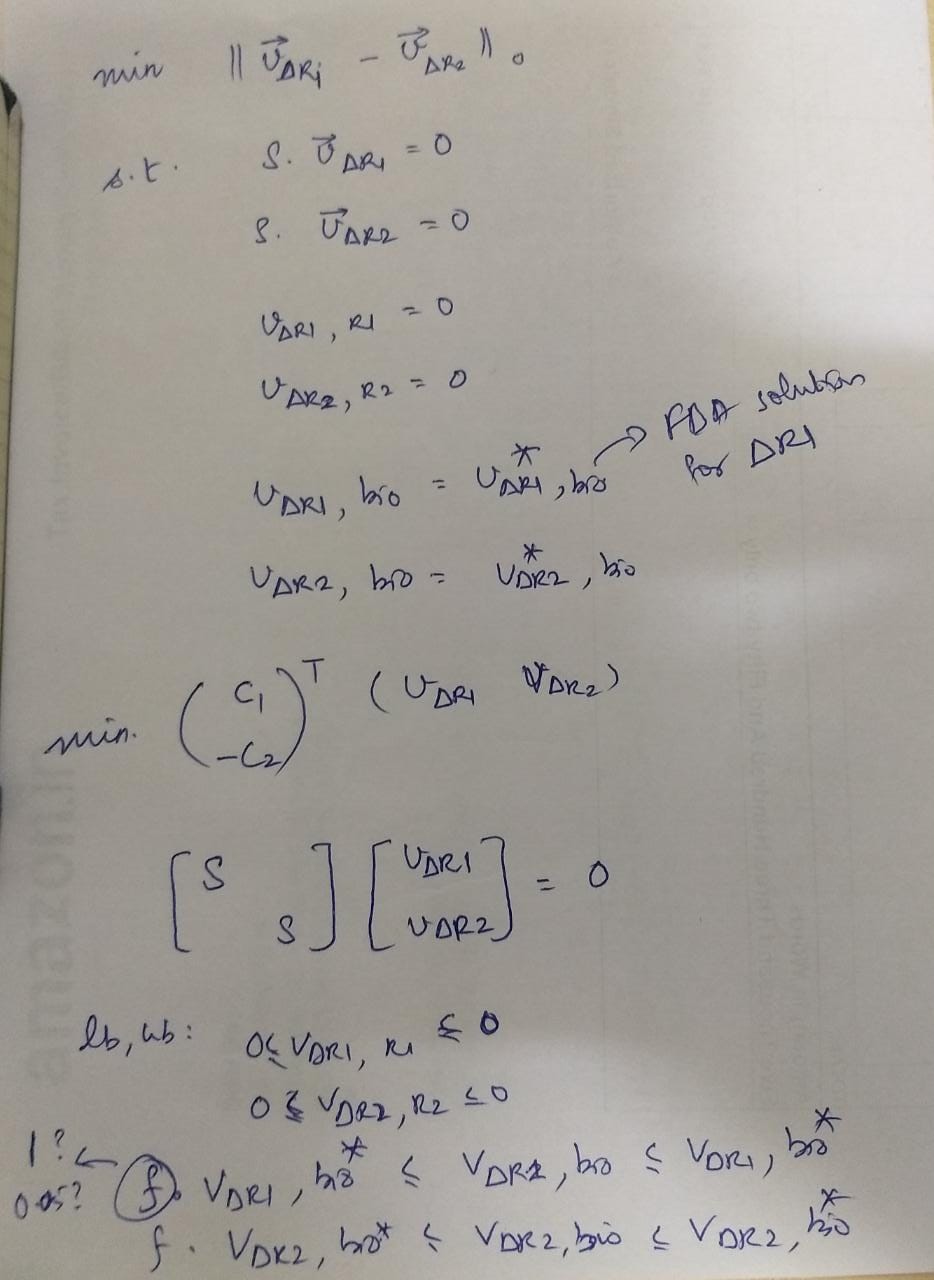 min ‖ v⃗ΔR1 − v⃗ΔR2 ‖₀
s.t. S. v⃗ΔR1 = 0
S. v⃗ΔR2 = 0
vΔR1, R1 = 0
vΔR2, R2 = 0
vΔR1, bio = v*ΔR1, bio → FBA solution for ΔR1
vΔR2, bio = v*ΔR2, bio
min. (C₁ −C₂)ᵀ (vΔR1 vΔR2)
[S S] [vΔR1 vΔR2] = 0
lb, ub: 0 ≤ vΔR1, R1 ≤ 0
0 ≤ vΔR2, R2 ≤ 0
1? 0.05? ← f. vΔR1, bio* ≤ vΔR1, bio ≤ vΔR1, bio*
f. vΔR2, bio* ≤ vΔR2, bio ≤ vΔR2, bio*